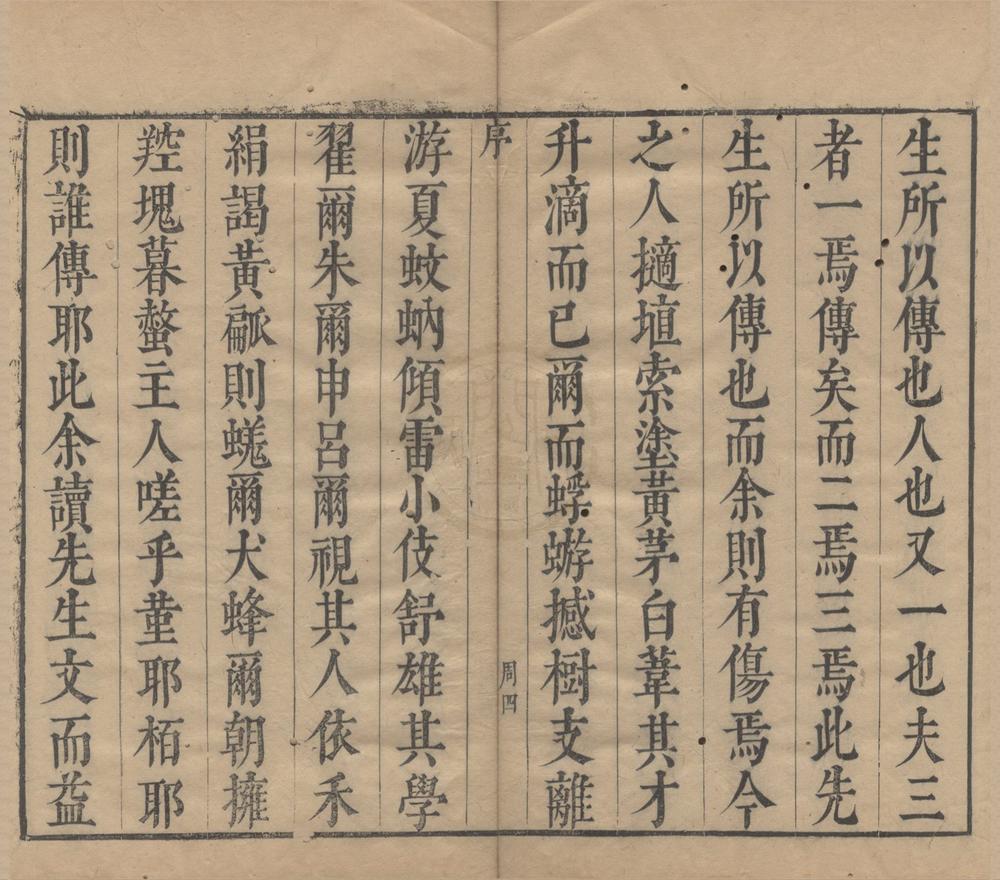 生所以傳也人也又一也夫三
者一焉傳矣而二焉三焉此先
生所以傳也而余則有傷焉今
之人擿埴索塗黃茅白葦其才
升滴而已爾而蜉蝣撼樹支離
序
周四
游夏蚊蚋傾雷小伎舒雄其學
翟爾朱爾申呂爾視其人依禾
絹謁黃瓤則蟣爾犬蜂爾朝擁
羫塊暮螫主人嗟乎董耶栢耶
則誰傳耶此余讀先生文而益